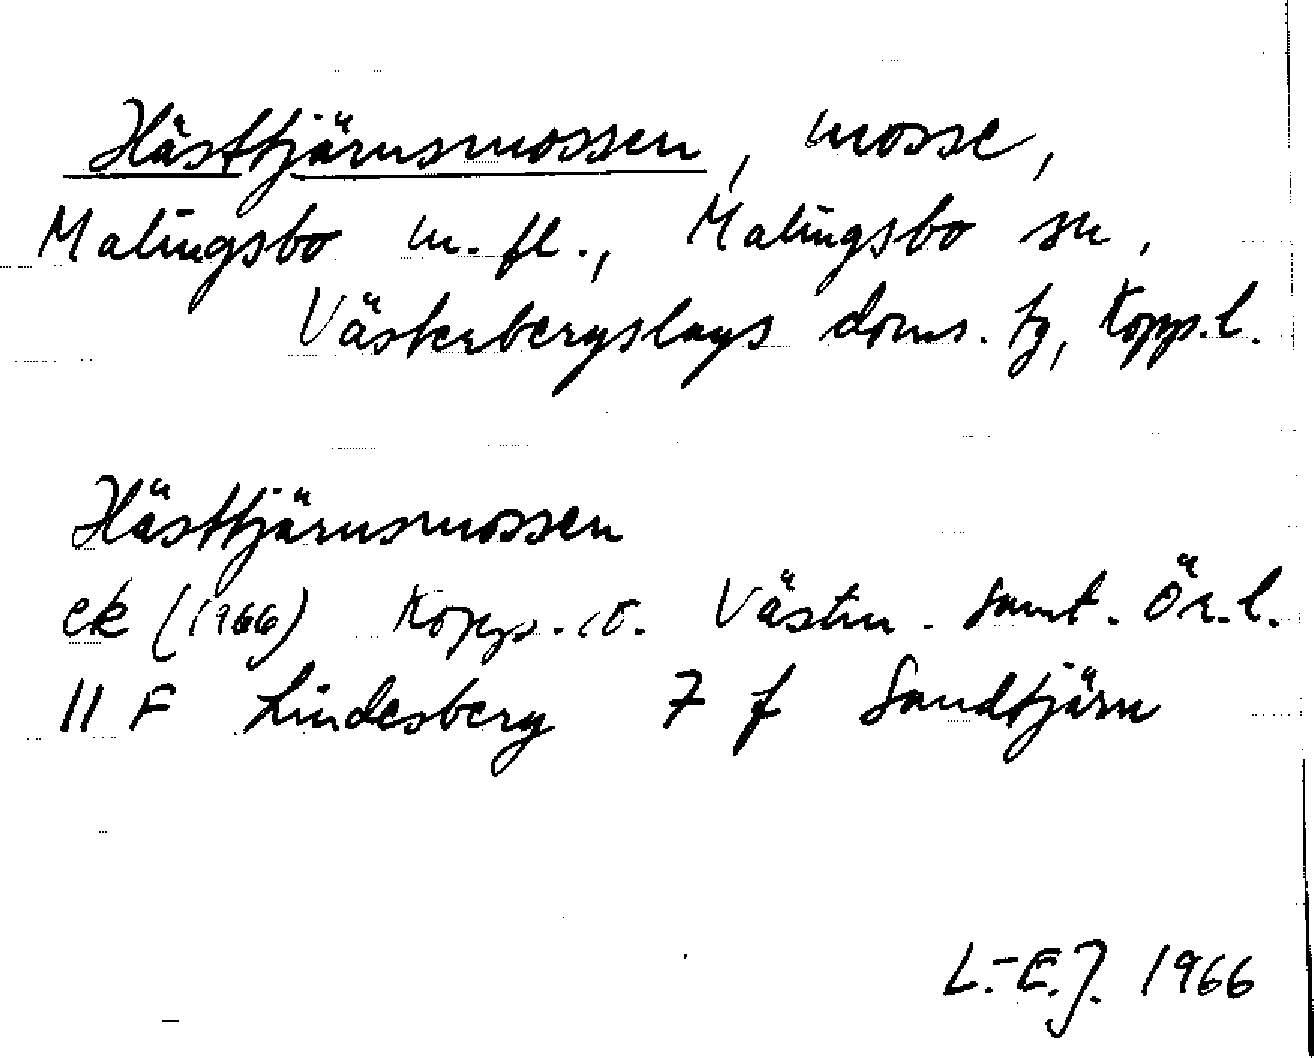 Hästtjärnsmossen, mosse,
Malingsbo m. fl., Malingsbo sn,
Västerbergslags doms. tg, Kopp.l.
Hästtjärnsmossen
ek (1966) Kopp.- o. Västm. samt. Ör.l.
11 F Lindesberg 7 f Sandtjärn
L.-E.J. 1966